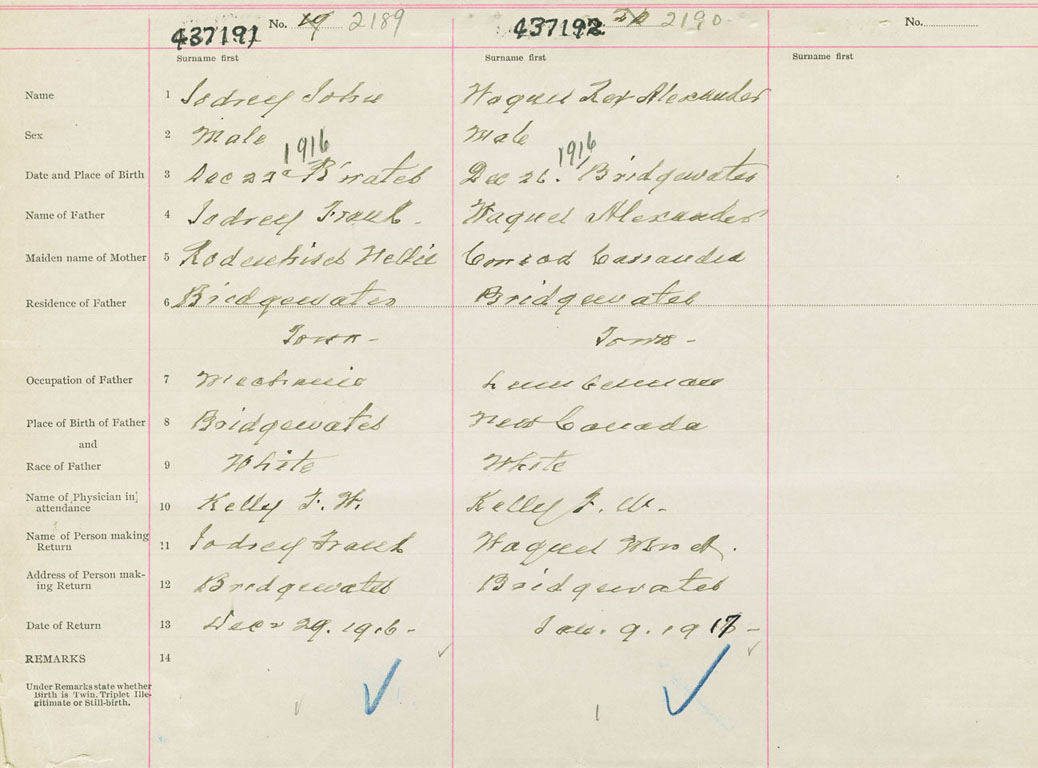 437191 No. 19 2189
437192 20 2190
No.
Surname first
Surname first
Surname first
Name 1 Jodrey John
Wagner Rex Alexander
Sex 2 Male
Male
1916
1916
Date and Place of Birth 3 Dec 22d B'water
Dec 26. Bridgewater
Name of Father 4 Jodrey Frank.
Wagner Alexander
Maiden name of Mother 5 Rodenhiser Nellie
Conrod Cassandra
Residence of Father 6 Bridgewater
Bridgewater
Town -
Town -
Occupation of Father 7 Mechanic
Lumberman
Place of Birth of Father 8 Bridgewater
New Canada
and
Race of Father 9 White
White
Name of Physician in attendance 10 Kelly F. W.
Kelly F. W.
Name of Person making Return 11 Jodrey Frank
Wagner
Address of Person making Return 12 Bridgewater
Bridgewater
Date of Return 13 Dec 29. 1916 -
Jan. 9. 1917 -
REMARKS 14
Under Remarks state whether
Birth is Twin, Triplet Ille-
gitimate or Still-birth.